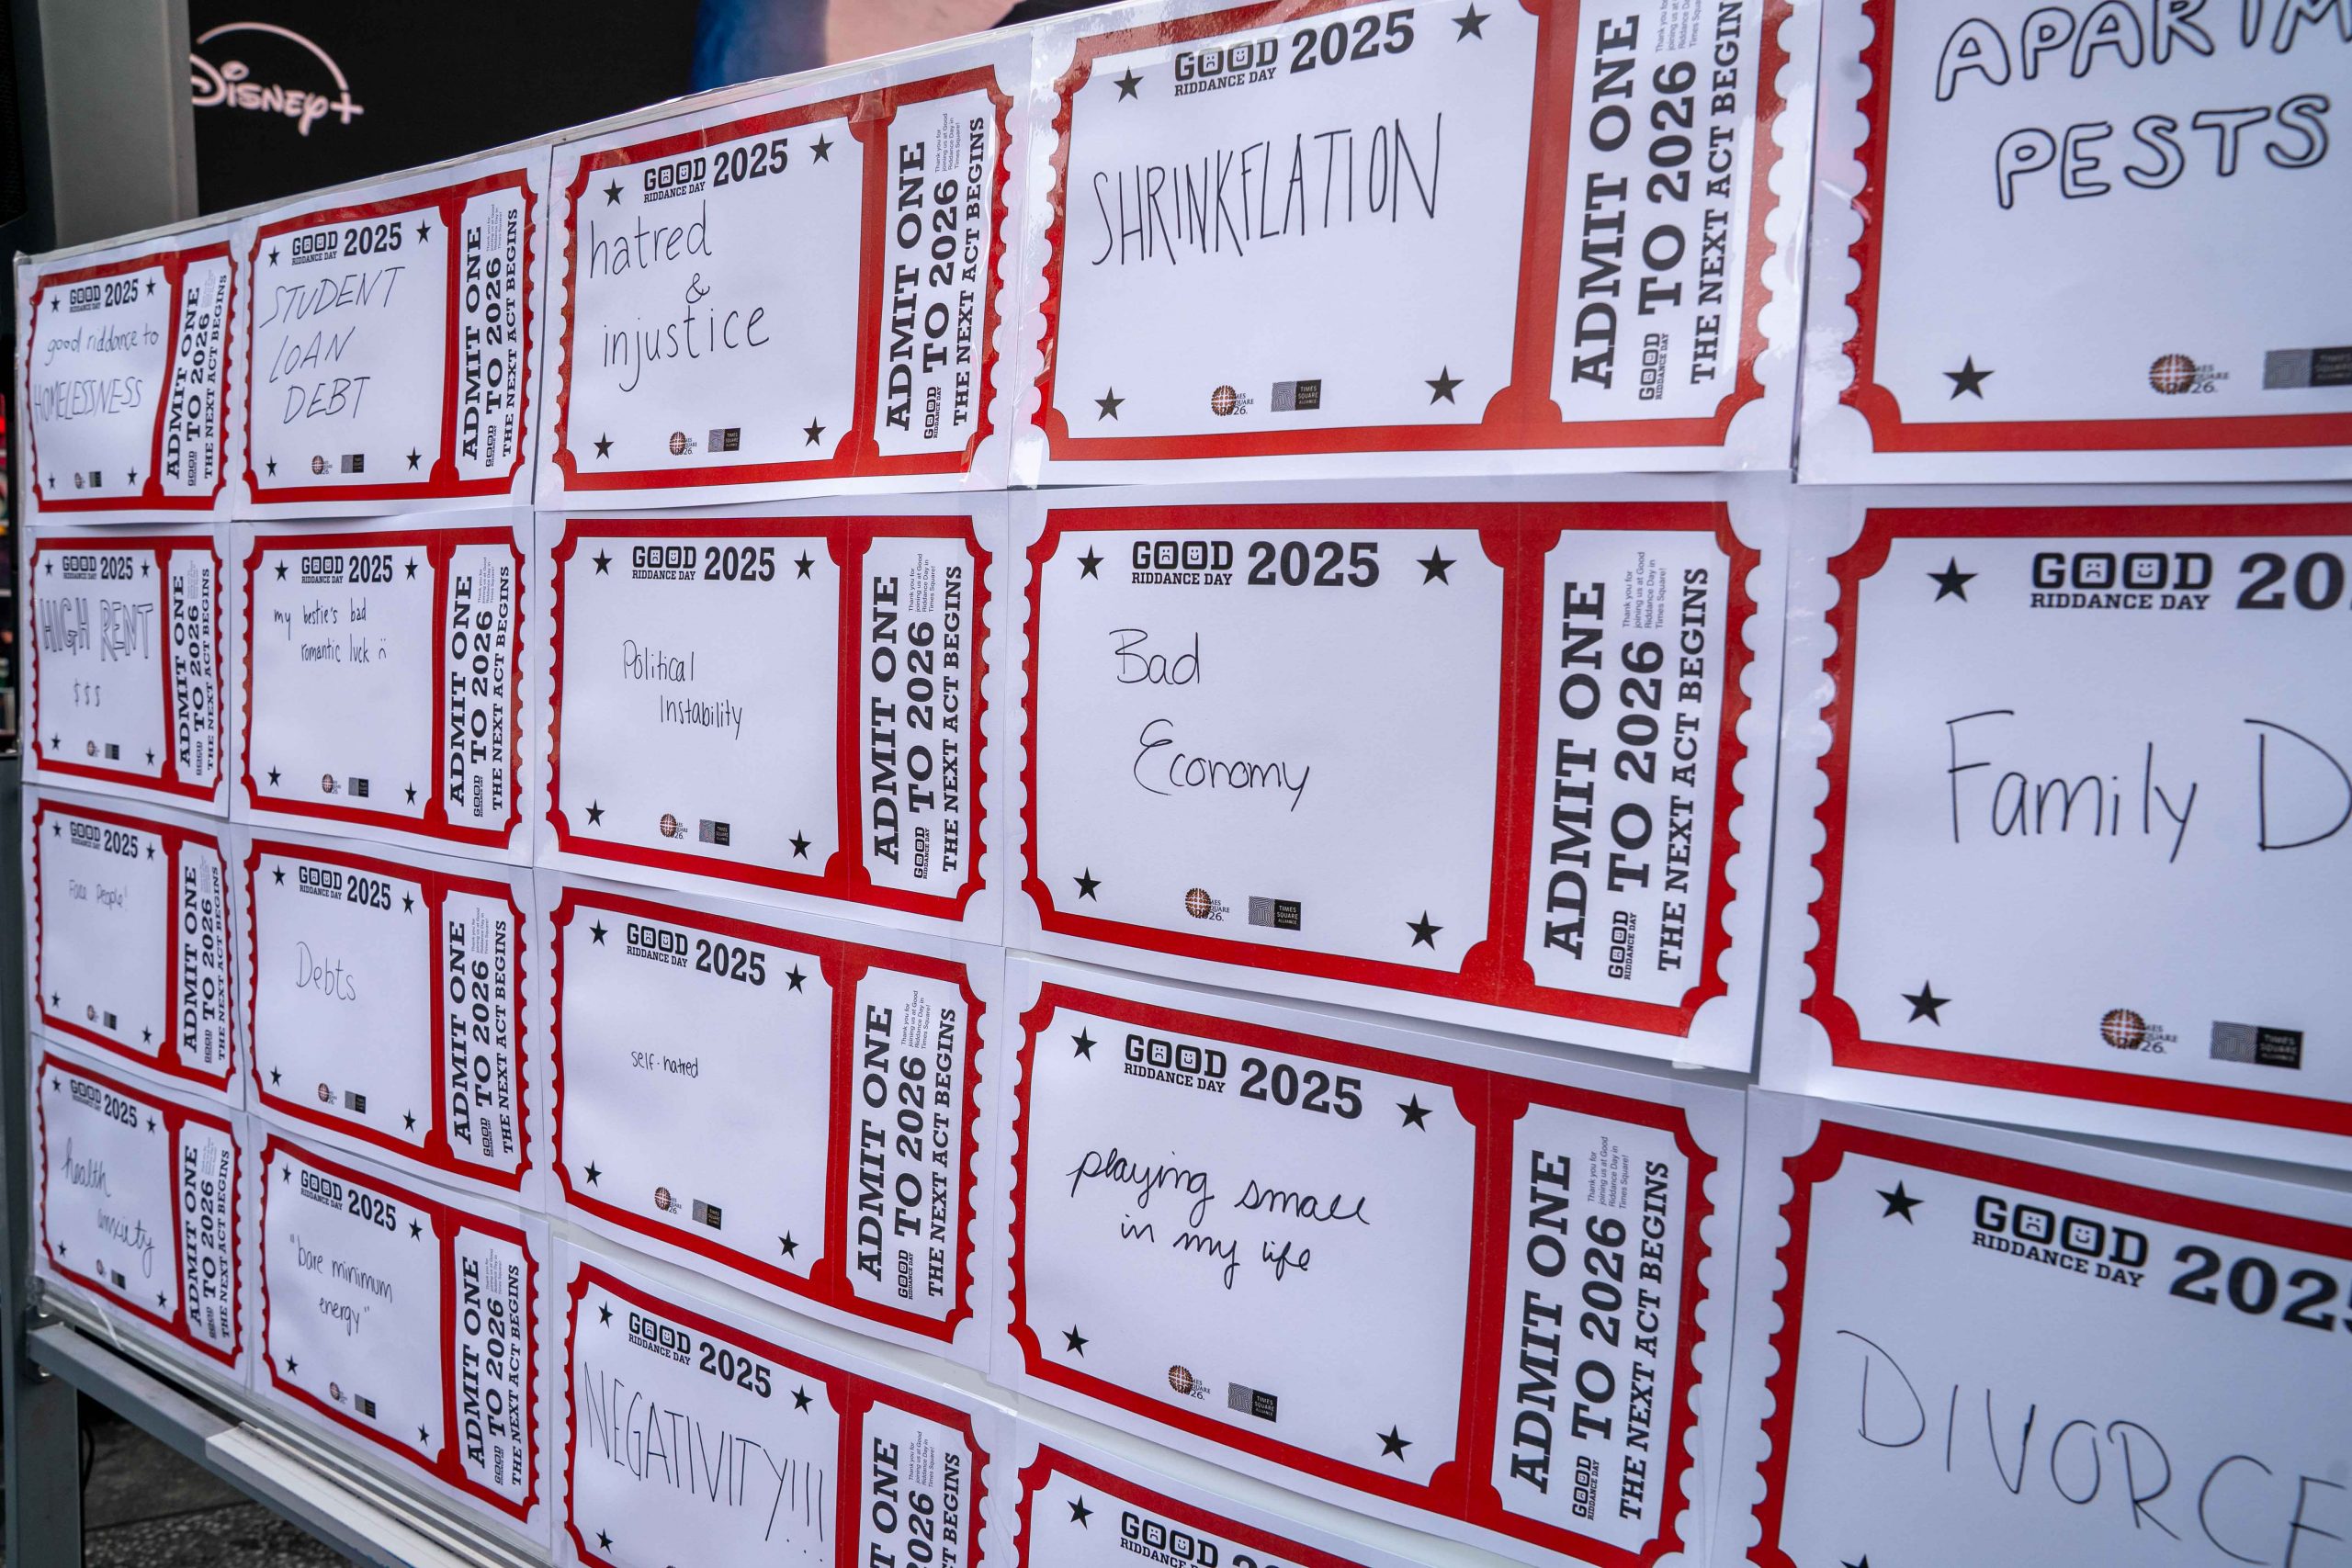 Disney+
GOOD 2025
RIDDANCE DAY
good riddance to
HOMELESSNESS
ADMIT ONE
GOOD RIDDANCE DAY TO 2026
THE NEXT ACT BEGINS
GOOD 2025
RIDDANCE DAY
STUDENT
LOAN
DEBT
ADMIT ONE
GOOD RIDDANCE DAY TO 2026
THE NEXT ACT BEGINS
GOOD 2025
RIDDANCE DAY
hatred
&
injustice
ADMIT ONE
Thank you for
joining us at Good
Riddance Day in
Times Square!
GOOD RIDDANCE DAY TO 2026
THE NEXT ACT BEGINS
GOOD 2025
RIDDANCE DAY
SHRINKFLATION
TIMES
SQUARE
ALLIANCE
ADMIT ONE
Thank you for
joining us at Good
Riddance Da
Times Sq
GOOD RIDDANCE DAY TO 2026
THE NEXT ACT BEGIN
APARTM
PESTS
GOOD 2025
RIDDANCE DAY
HIGH RENT
$$$
ADMIT ONE
GOOD RIDDANCE DAY TO 2026
THE NEXT ACT BEGINS
GOOD 2025
RIDDANCE DAY
my bestie's bad
romantic luck
ADMIT ONE
GOOD RIDDANCE DAY TO 2026
THE NEXT ACT BEGINS
GOOD 2025
RIDDANCE DAY
Political
Instability
ADMIT ONE
Thank you for
joining us at Good
Riddance Day in
Times Square!
GOOD RIDDANCE DAY TO 2026
THE NEXT ACT BEGINS
GOOD 2025
RIDDANCE DAY
Bad
Economy
TIMES
SQUARE
ALLIANCE
ADMIT ONE
Thank you for
joining us at Good
Riddance Day in
Times Square!
GOOD RIDDANCE DAY TO 2026
THE NEXT ACT BEGINS
GOOD 20
RIDDANCE DAY
Family D
GOOD 2025
RIDDANCE DAY
People
ADMIT ONE
GOOD RIDDANCE DAY TO 2026
THE NEXT ACT BEGINS
GOOD 2025
RIDDANCE DAY
Debts
ADMIT ONE
GOOD RIDDANCE DAY TO 2026
THE NEXT ACT BEGINS
GOOD 2025
RIDDANCE DAY
self-hatred
ADMIT ONE
Thank you for
joining us at Good
Riddance Day in
Times Square!
GOOD RIDDANCE DAY TO 2026
THE NEXT ACT BEGINS
GOOD 2025
RIDDANCE DAY
playing small
in my life
TIMES
SQUARE
ALLIANCE
ADMIT ONE
Thank you for
joining us at Good
Riddance Day in
Times Square!
GOOD RIDDANCE DAY TO 2026
THE NEXT ACT BEGINS
GOOD 202
RIDDANCE DAY
DIVORCE
GOOD 2025
RIDDANCE DAY
health
anxiety
ADMIT ONE
GOOD RIDDANCE DAY TO 2026
THE NEXT ACT BEGINS
GOOD 2025
RIDDANCE DAY
"bare minimum
energy"
ADMIT ONE
GOOD RIDDANCE DAY TO 2026
THE NEXT ACT BEGINS
GOOD 2025
RIDDANCE DAY
NEGATIVITY!!!
T ONE
Thank you for
joining us at Good
Riddance Day in
Times Square!
2026
T BEGINS
GOOD
RIDDANCE DAY